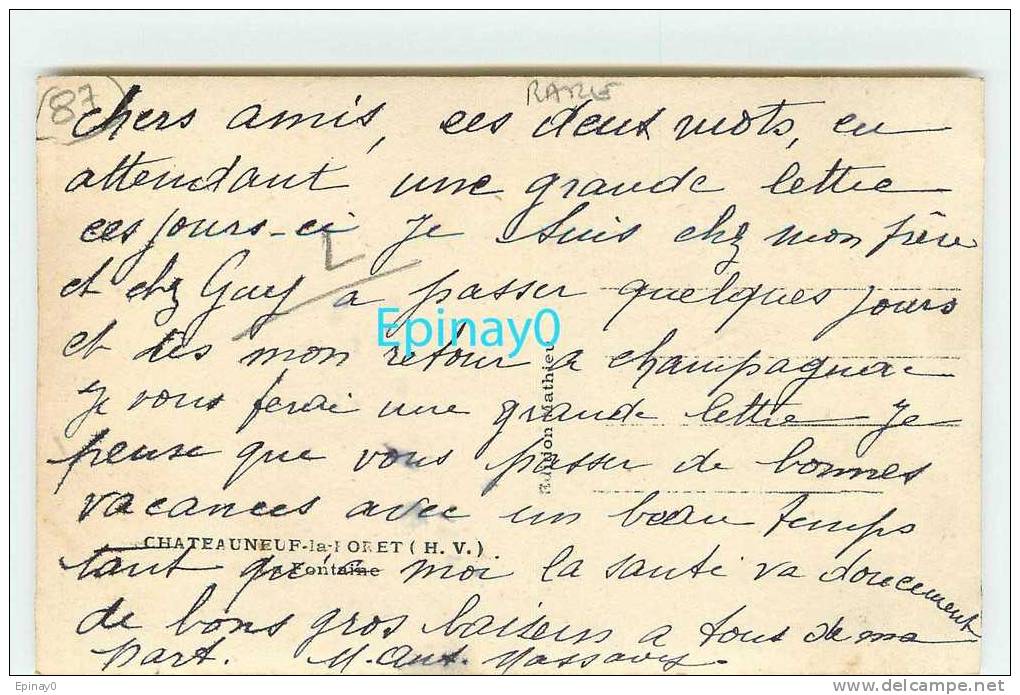 (87)
RARE
chers amis, ces deux mots, en
attendant une grande lettre
ces jours-ci Je suis chez mon frère
et chez Guy a passer quelques jours
et des mon retour a champagnac
Je vous ferai une grande lettre Je
pense que vous passer de bonnes
vacances avec un beau temps
CHATEAUNEUF-la-FORET (H. V.)
La Fontaine
tant qu'à moi la santé va doucement
de bons gros baisers a tous de ma
part. M. Ant.
Edition Mathieu
Epinay0
Epinay0
www.delcampe.net